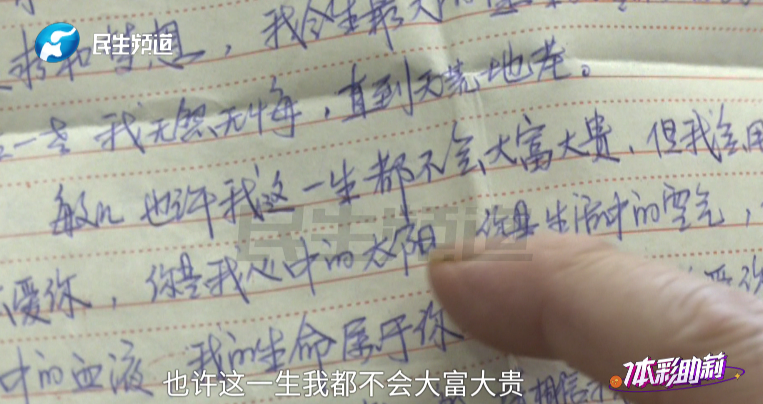 民生频道
求和梦想，我今生最大的
一去 我无怨无悔，直到天荒地老。
敏儿 也许我这一生都不会大富大贵，但我会用
爱你，你是我心中的太阳 你是生活中的空气，
中的血液 我的生命属于你
民生频道
也许这一生我都不会大富大贵
体彩助利
相信